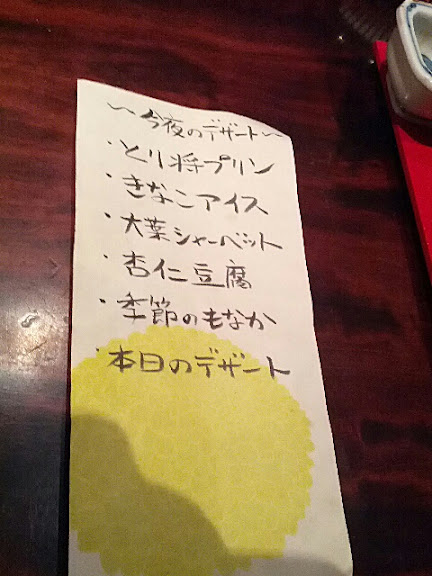 〜今夜のデザート〜
・とり将プリン
・きなこアイス
・大葉シャーベット
・杏仁豆腐
・季節のもなか
・本日のデザート